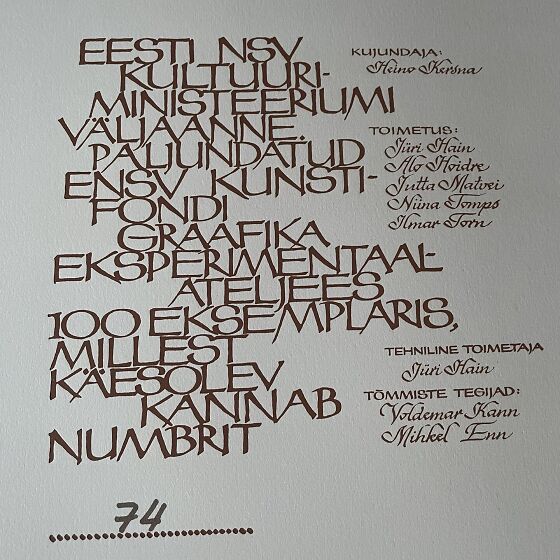 EESTI NSV
KULTUURI-
MINISTEERIUMI
VÄLJAANNE.
PALJUNDATUD
ENSV KUNSTI-
FONDI
GRAAFIKA
EKSPERIMENTAAL-
ATELJEES
100 EKSEMPLARIS,
MILLEST
KÄESOLEV
KANNAB
NUMBRIT
74
KUJUNDAJA:
Heino Kersna
TOIMETUS:
Jüri Hain
Alo Hoidre
Jutta Matvei
Niina Tomps
Ilmar Torn
TEHNILINE TOIMETAJA
Jüri Hain
TÕMMISTE TEGIJAD:
Voldemar Kann
Mihkel Enn